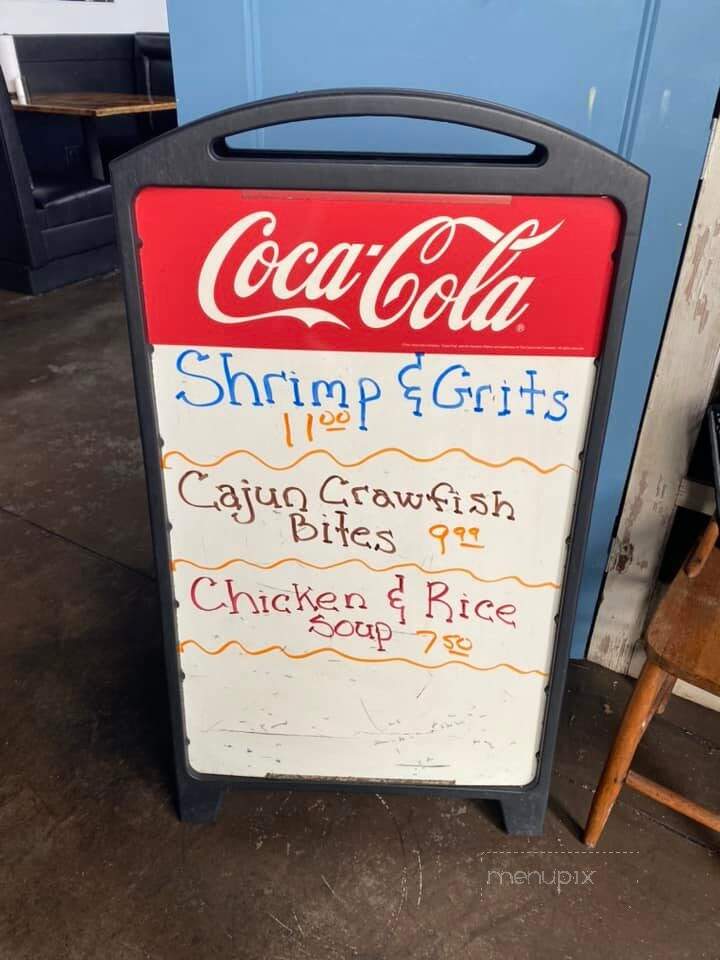 Coca-Cola
Shrimp & Grits
11.00
Cajun Crawfish
Bites 9.99
Chicken & Rice
Soup 7.50
menupix